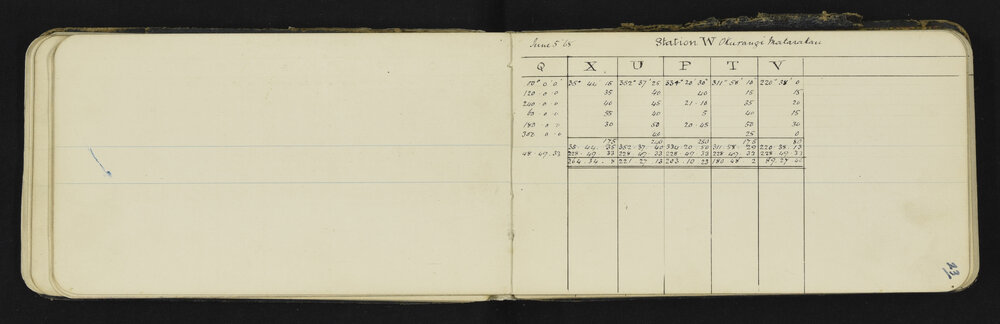 June 5 '68 Station W Okurangi Mataratau
Q X U F T V
10° 0' 0" 35° 44 15 352° 37' 25 334° 20' 30" 311° 58' 10" 220° 38' 0
120 . 0 . 0 35 40 40 15 15
240 . 0 . 0 40 45 21 . 10 35 20
60 . 0 . 0 55 40 5 40 15
180 . 0 . 0 30 50 20 . 45 50 30
300 . 0 . 0 40 25 0
175 240 250 175 80
35 . 44 . 35 352 . 37 . 40 334 . 20 . 50 311 . 58 . 29 220 . 38 . 13
48 . 49 . 33 228 . 49 . 33 228 . 49 . 33 228 . 49 . 33 228 . 49 . 33 228 . 49 . 33
264 . 34 . 8 221 . 27 . 13 203 . 10 . 23 180 . 48 . 2 89 . 27 . 46